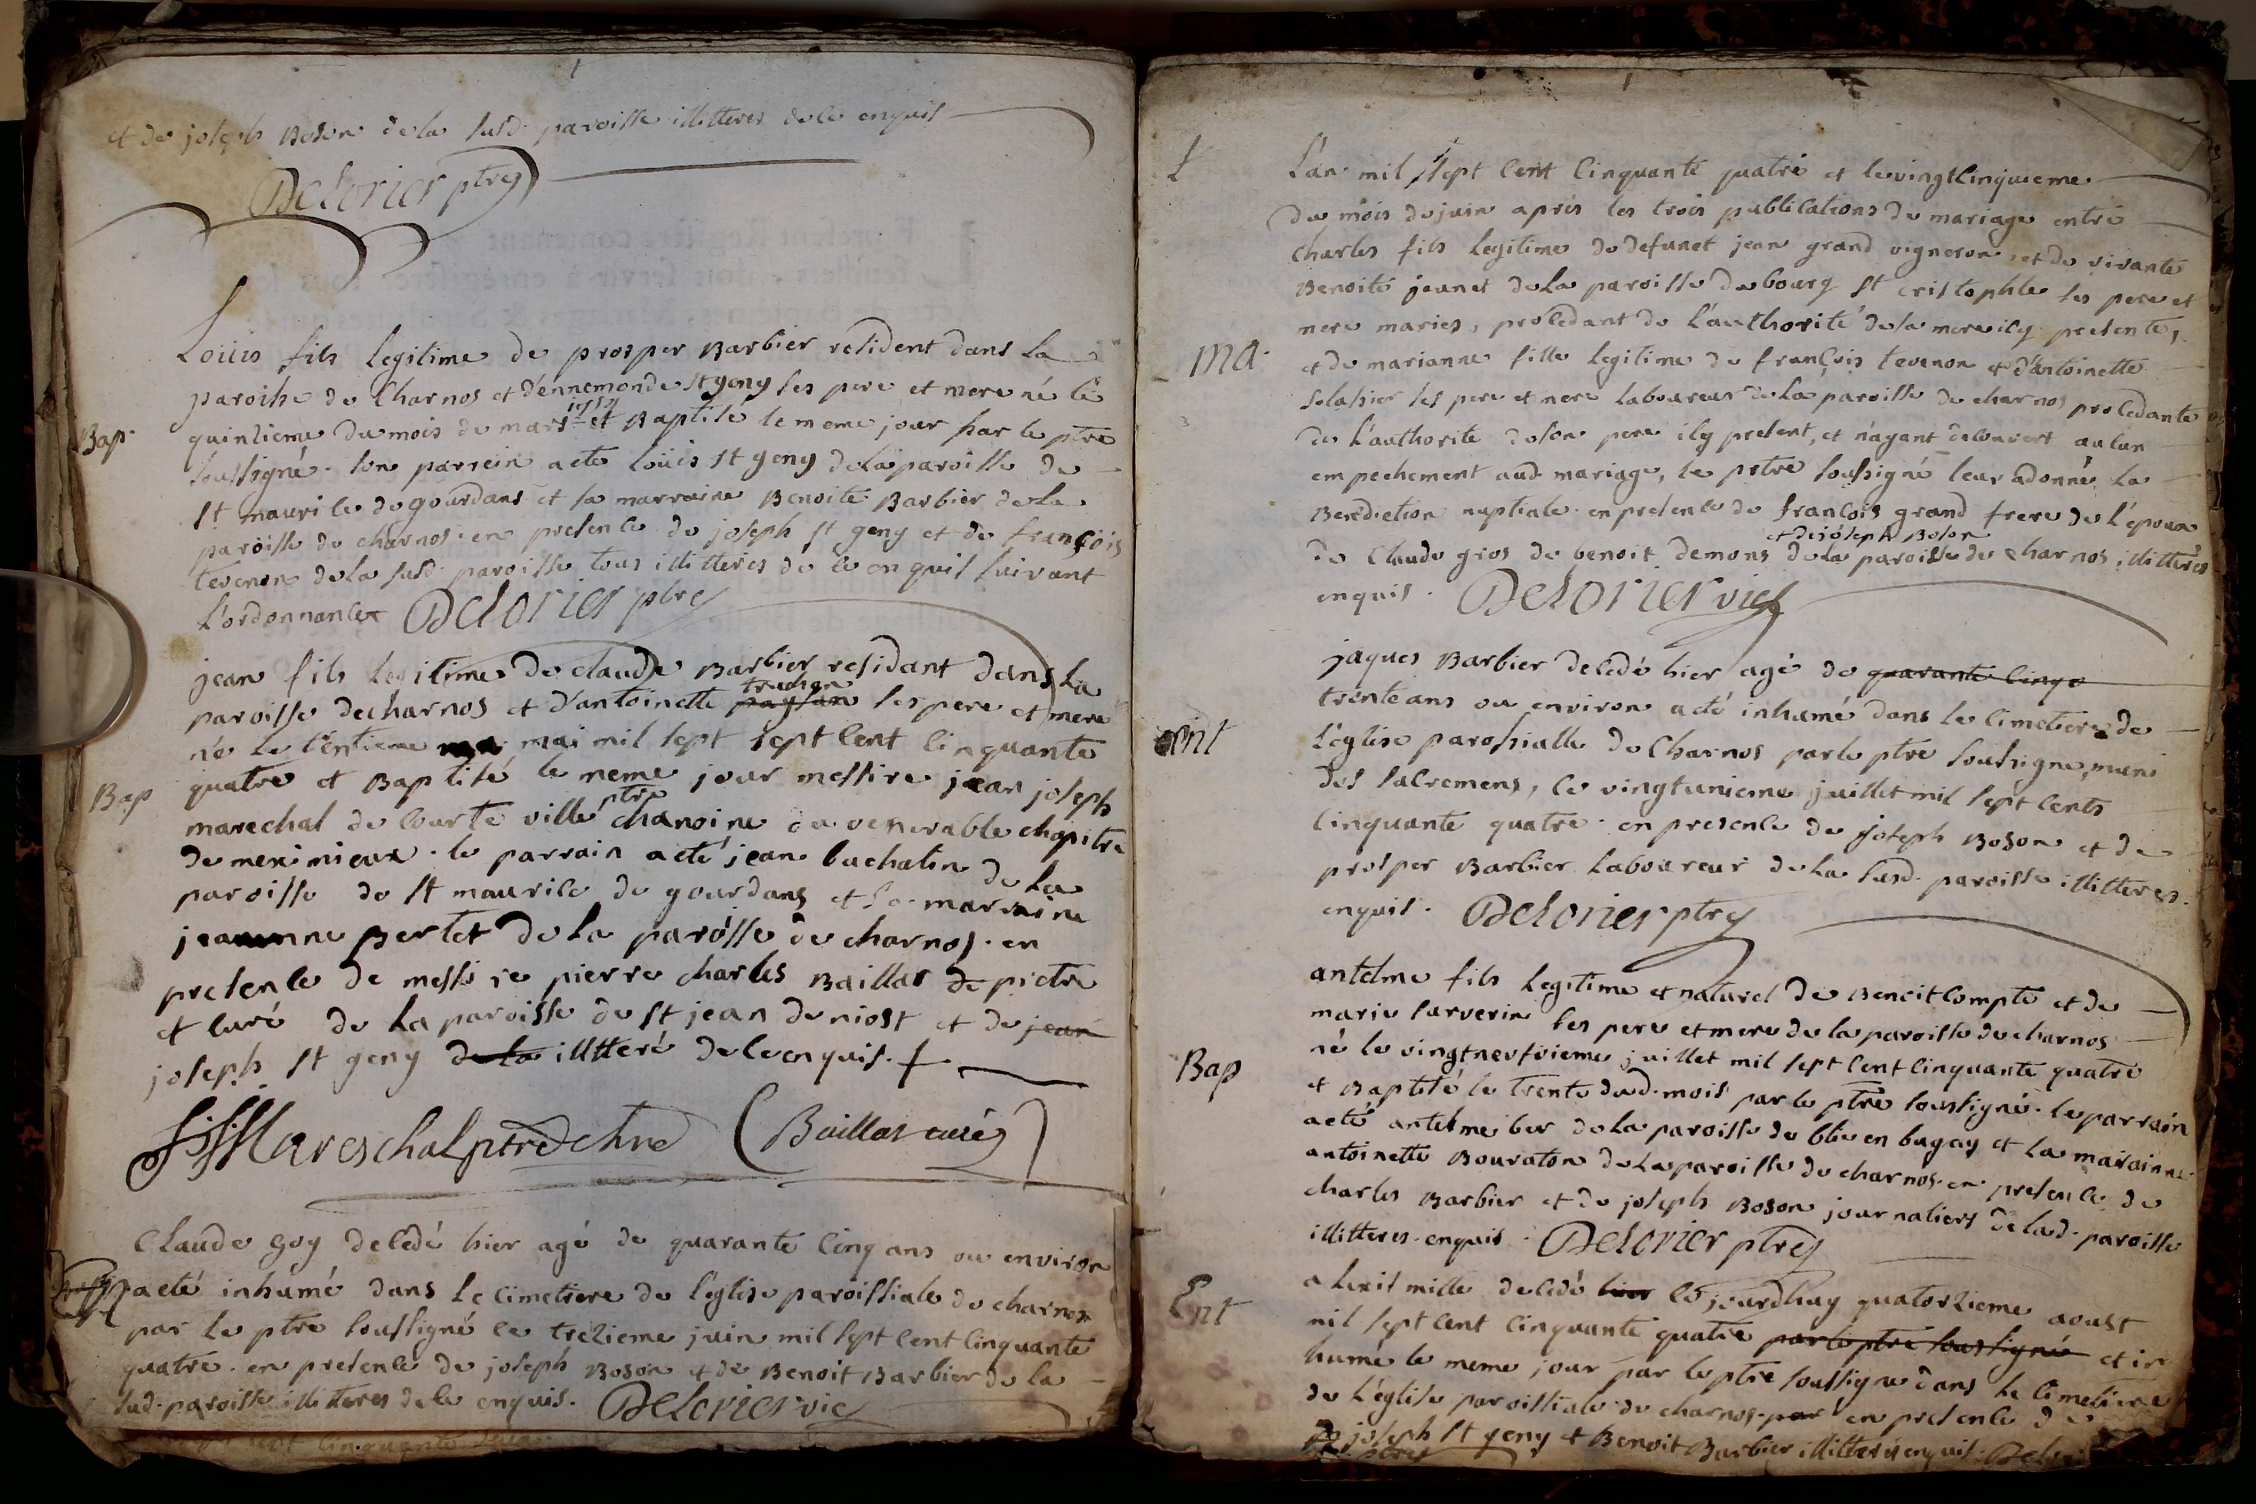 et de joseph Boson de la susd. paroisse illitteres de ce enquis
Delorier ptre
Loüis fils legitime de prosper Barbier resident dans la
paroisse de Charnos et d'ennemonde St geny ses pere et mere né le
1754
Bap. quinzieme du mois de mars et Baptisé le meme jour par le ptre
soussigné. son parrein a eté loüis St geny de la paroisse de
St maurice de gourdans et sa marraine Benoite Barbier de la
paroisse de charnos. en presence de joseph St geny et de françois
tevenon de la susd. paroisse tous illitteres de ce enquis suivant
l'ordonnance Delorier ptre
jean fils legitime de claude Barbier residant dans la
truchon
paroisse de charnos et d'antoinette paysan ses pere et mere
né le trentieme mai mil sept sept cent cinquante
Bap quatre et Baptisé le meme jour messire jean joseph
ptre
marechal de courte ville chanoine du venerable chapitre
de meximieux. le parrain a eté jean buchalin de la
paroisse de St maurice de gourdans et la marraine
jeanne Bertet de la paroisse de charnos. en
presence de messire pierre charles Baillar de pretre
et curé de la paroisse de St jean de niost et de jean
joseph St geny de la illitteré de ce enquis.
JJ Mareschal ptre chne Baillat curé
Claude goy decedé hier agé de quarante cinq ans ou environ
a eté inhumé dans le cimetiere de l'église paroissiale de charnos
par le ptre soussigné ce trezieme juin mil sept cent cinquante
quatre. en presence de joseph Boson et de Benoit Barbier de la
sud. paroisse illitteres de ce enquis. Delorier vic
L'an mil sept cent cinquante quatre et le vingt cinquieme
du mois de juin après les trois publications du mariage entre
charles fils legitime de defunct jean grand vigneron, et de vivante
Benoite jeanet de la paroisse du bourg St cristophle ses pere et
mere maries, procedant de l'authorité de la mere icy presente,
ma. et de marianne fille legitime de françois tevenon et d'antoinette
Solasier ses pere et mere laboureur de la paroisse de charnos procedante
de l'authorite de son pere icy present, et n'ayant decouvert aucun
empechement aud mariage, le prtre soussigné leur a donné la
Benediction nuptiale en presence de françois grand frere de l'epoux
et de joseph Boson
de Claude gros de benoit demons de la paroisse de charnos illitteres
enquis. Delorier vic
jaques Barbier decedé hier agé de quarante cinq
trente ans ou environ a eté inhumé dans le cimetiere de
ent l'église parossialle de Charnos par le ptre soussigne, muni
des sacremens, ce vingtunieme juillet mil sept cents
cinquante quatre. en presence de joseph Boson et de
prosper Barbier laboureur de la susd. paroisse illitteres.
enquis. Delorier ptre
antelme fils legitime et naturel de Benoit Compte et de
marie sarverin ses pere et mere de la paroisse de charnos
né le vingtneufvieme juillet mil sept cent cinquante quatre
Bap et Baptisé le trente dud. mois par le ptre soussigné. le parrain
a eté antelme ber de la paroisse de blie en bugey et la marainne
antoinette Bouraton de la paroisse de charnos. en presence de
charles Barbier et de joseph Boson journaliers de lad. paroisse
illitteres. enquis. Delorier ptre
Ent alexis mille decedé hier ce jourdhuy quatorzieme aoust
mil sept cent cinquante quatre par le ptre soussigné et in
humé le meme jour par le ptre soussigne dans le cimetiere
de l'église paroissiale de charnos. par en presence de
joseph St geny et Benoit Barbier illitteres enquis.